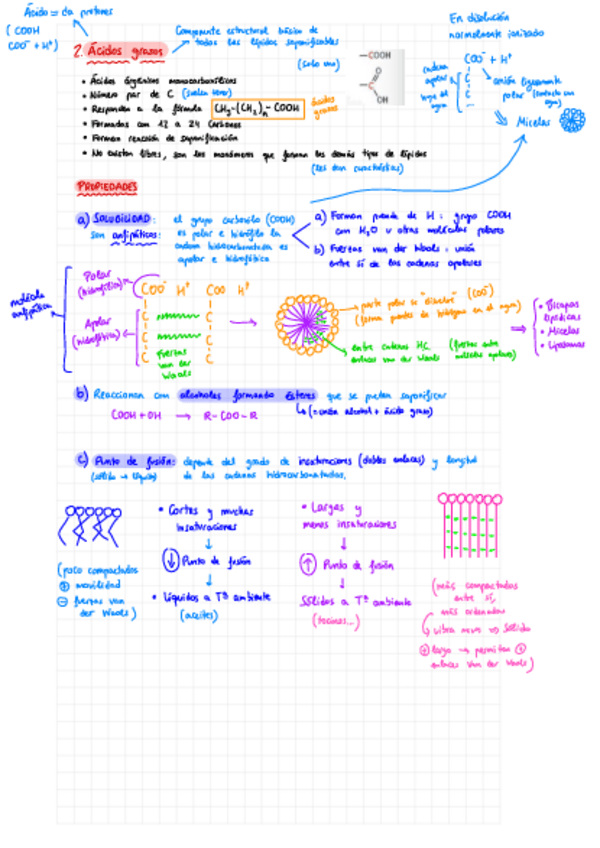 Ácido = da protones
(COOH
COO⁻ + H⁺)
Componente estructural básico de
todos los lípidos saponificables
2. Ácidos grasos
(solo uno)
—COOH
—C
O
OH
En disolución
normalmente ionizado
COO⁻ + H⁺
cadena
apolar
C
C
unión ligeramente
polar (contacto con
agua)
Micelas
• Ácidos orgánicos monocarboxílicos
• Número par de C (suelen tener)
• Responden a la fórmula CH₃-(CH₂)ₙ-COOH ácidos
grasos
• Formados con 12 a 24 carbonos
• Forman reacción de saponificación
• No existen libres, son los monómeros que forman los demás tipos de lípidos
(les dan característica)
PROPIEDADES
a) SOLUBILIDAD: el grupo carboxilo (COOH)
son anfipáticos: es polar e hidrófilo la
cadena hidrocarbonada es
apolar e hidrofóbica
a) Forman puente de H: grupo COOH
con H₂O u otras moléculas polares
b) Fuerzas van der Waals: unión
entre sí de las cadenas apolares
molécula
anfipática
Polar
(hidrofílica)
Apolar
(hidrofóbica)
COO⁻ H⁺ COO H⁺
C C
C C
C C
C C
Fuerzas
van der
Waals
parte polar se "disuelve" (COO⁻)
(forma puentes de hidrógeno en el agua)
entre cadenas HC (fuertes entre
enlaces van der Waals moléculas apolares)
• Bicapas
lipídicas
• Micelas
• Liposomas
b) Reaccionan con alcoholes formando ésteres que se pueden saponificar
COOH + OH → R-COO-R (= unión alcohol + ácido graso)
c) Punto de fusión: depende del grado de insaturaciones (dobles enlaces) y longitud
(sólido → líquido) de las cadenas hidrocarbonadas.
• Cortas y muchas
insaturaciones
↓
↓ Punto de fusión
↓
• Líquidos a Tª ambiente
(aceites)
(poco compactados
⊕ movilidad
⊖ fuerzas van
der Waals)
• Largas y
menos insaturaciones
↓
↑ Punto de fusión
↓
Sólidos a Tª ambiente
(tocinos...)
(más compactados
entre sí,
más ordenados
sólido
⊕ largo → permiten ⊕
enlaces Van der Waals)